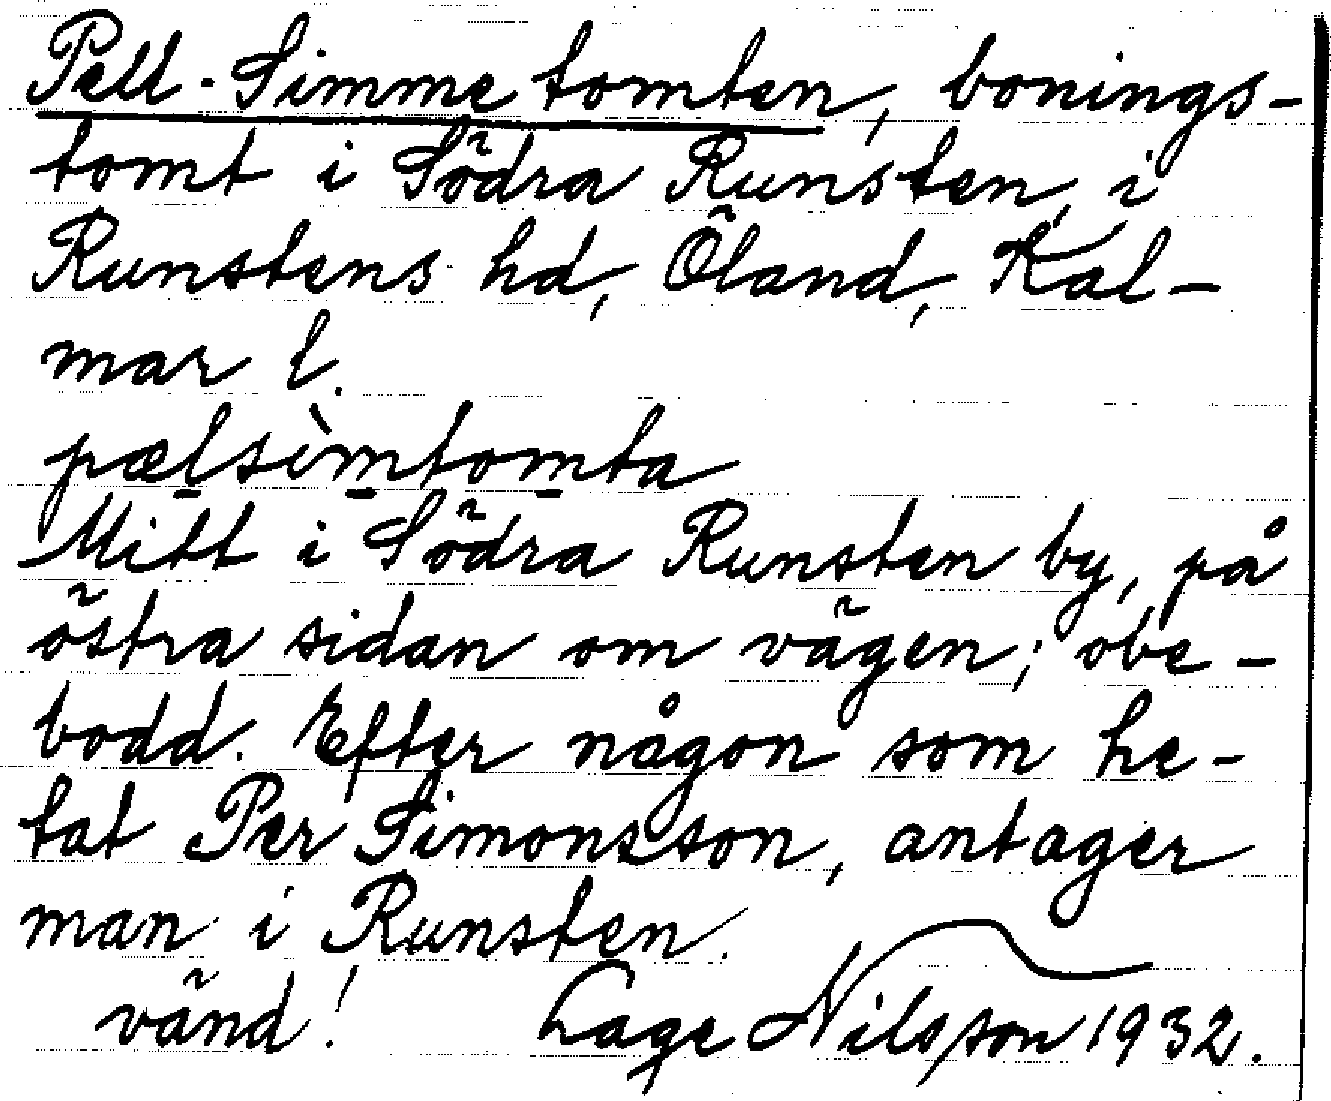 Pell-Simmetomten, bonings-
tomt i Södra Runsten, i
Runstens hd, Öland, Kal-
mar l.
pælsìmtomta
Mitt i Södra Runsten by, på
östra sidan om vägen; obe-
bodd. Efter någon som he-
tat Per Simonsson, antager
man i Runsten.
vänd! Lage Nilsson 1932.